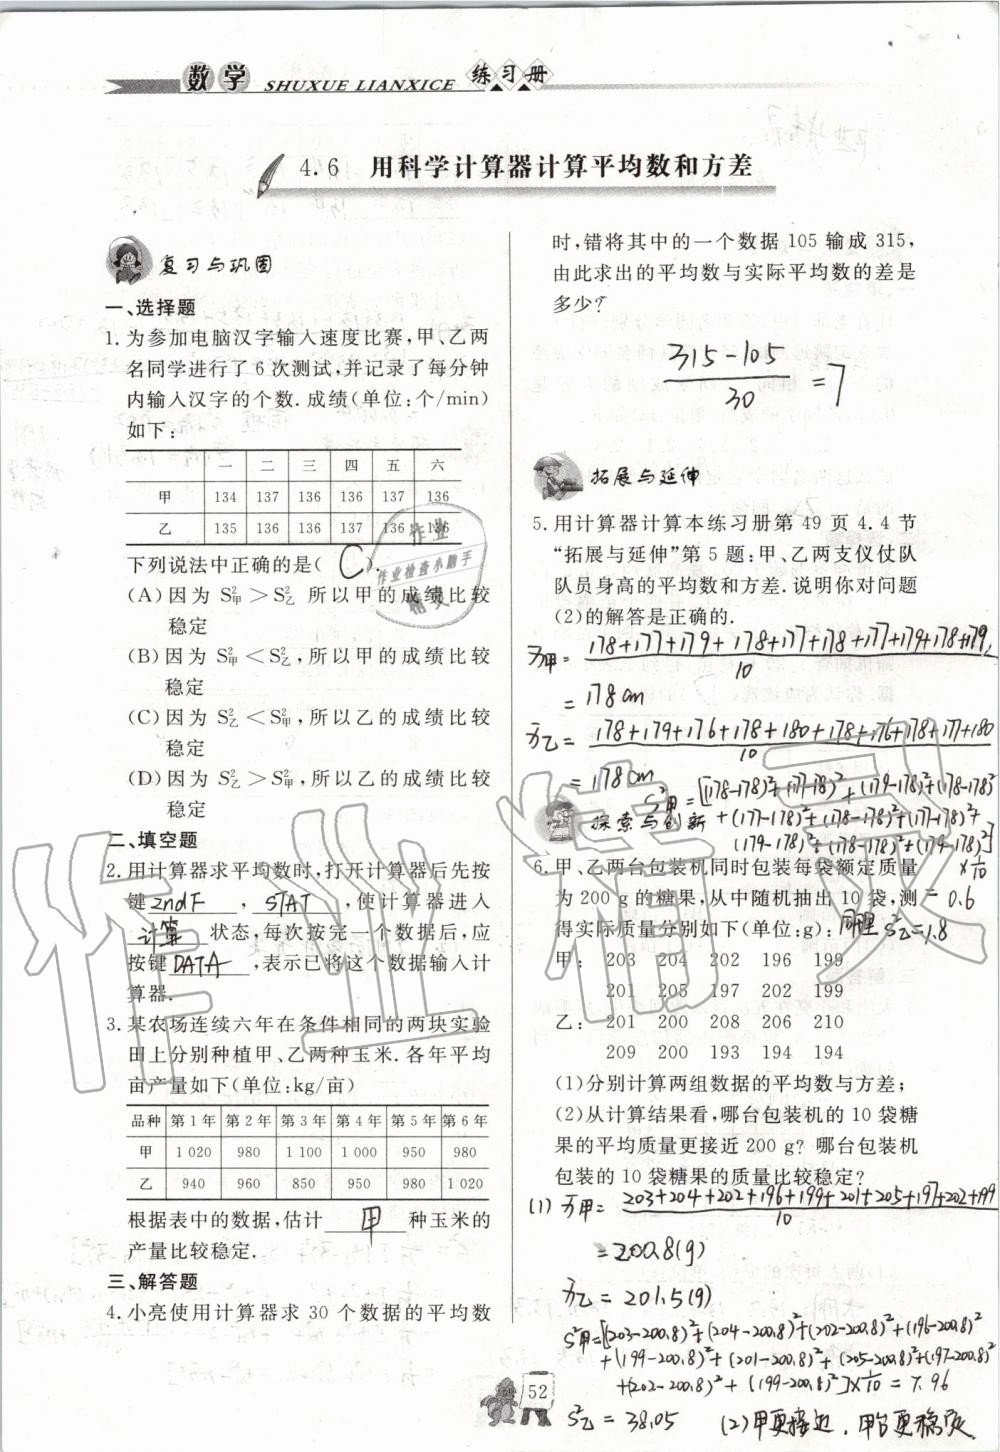 数学 SHUXUE LIANXICE 练习册
4.6 用科学计算器计算平均数和方差
复习与巩固
一、选择题
1. 为参加电脑汉字输入速度比赛,甲、乙两
名同学进行了6次测试,并记录了每分钟
内输入汉字的个数.成绩(单位:个/min)
如下:
一 二 三 四 五 六
甲 134 137 136 136 137 136
乙 135 136 136 137 136 136
下列说法中正确的是( C ).
(A)因为 S²甲>S²乙 所以甲的成绩比较
稳定
(B)因为 S²甲<S²乙,所以甲的成绩比较
稳定
(C)因为 S²乙<S²甲,所以乙的成绩比较
稳定
(D)因为 S²乙>S²甲,所以乙的成绩比较
稳定
二、填空题
2. 用计算器求平均数时,打开计算器后先按
键 2ndF , STAT ,使计算器进入
计算 状态,每次按完一个数据后,应
按键 DATA ,表示已将这个数据输入计
算器.
3. 某农场连续六年在条件相同的两块实验
田上分别种植甲、乙两种玉米.各年平均
亩产量如下(单位:kg/亩)
品种 第1年 第2年 第3年 第4年 第5年 第6年
甲 1 020 980 1 100 1 000 950 980
乙 940 960 850 950 980 1 020
根据表中的数据,估计 甲 种玉米的
产量比较稳定.
三、解答题
4. 小亮使用计算器求 30 个数据的平均数
时,错将其中的一个数据 105 输成 315,
由此求出的平均数与实际平均数的差是
多少?
315-105
30
=7
拓展与延伸
5. 用计算器计算本练习册第 49 页 4.4 节
“拓展与延伸”第 5 题:甲、乙两支仪仗队
队员身高的平均数和方差.说明你对问题
(2)的解答是正确的.
x̄甲= 178+177+179+178+177+178+177+179+178+179
10
=178cm
x̄乙= 178+179+176+178+180+178+176+178+177+180
10
=178cm
S²甲=[(178-178)²+(177-178)²+(179-178)²+(178-178)²
+(177-178)²+(178-178)²+(177-178)²+
(179-178)²+(178-178)²+(179-178)²]
×1/10
=0.6
同理 S²乙=1.8
探索与创新
6. 甲、乙两台包装机同时包装每袋额定质量
为 200 g 的糖果,从中随机抽出 10 袋,测
得实际质量分别如下(单位:g):
甲: 203 204 202 196 199
201 205 197 202 199
乙: 201 200 208 206 210
209 200 193 194 194
(1)分别计算两组数据的平均数与方差;
(2)从计算结果看,哪台包装机的 10 袋糖
果的平均质量更接近 200 g? 哪台包装机
包装的 10 袋糖果的质量比较稳定?
(1) x̄甲= 203+204+202+196+199+201+205+197+202+199
10
=200.8(g)
x̄乙=201.5(g)
S²甲=[(203-200.8)²+(204-200.8)²+(202-200.8)²+(196-200.8)²
+(199-200.8)²+(201-200.8)²+(205-200.8)²+(197-200.8)²
+(202-200.8)²+(199-200.8)²]×1/10=7.96
S²乙=38.05 (2)甲更接近,甲台更稳定
52
作业
作业检查小助手
精灵
作业精灵